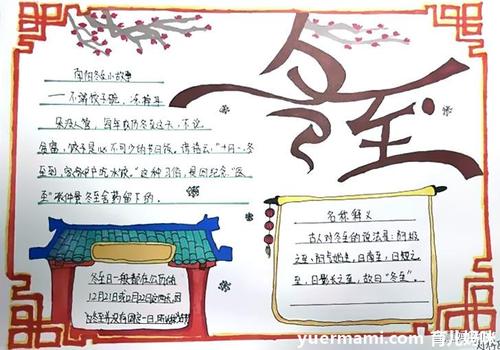 冬至
南阳冬至小故事
——不端饺子碗,冻掉耳
每年农历冬至这天,不论
贫富,饺子是必不可少的节日饭。谚语云:“十月一,冬
至到,家家户户吃水饺。”这种习俗,是因纪念“医
圣”张仲景冬至舍药留下的。
名称释义
古人对冬至的说法是:阴极
之至,阳气始生,日南至,日短之
至,日影长之至,故曰“冬至”。
冬至日一般都在公历的
12月21日或12月22日这两天,因
冬至并没有固定一日,所以
yuermami.com 育儿妈咪